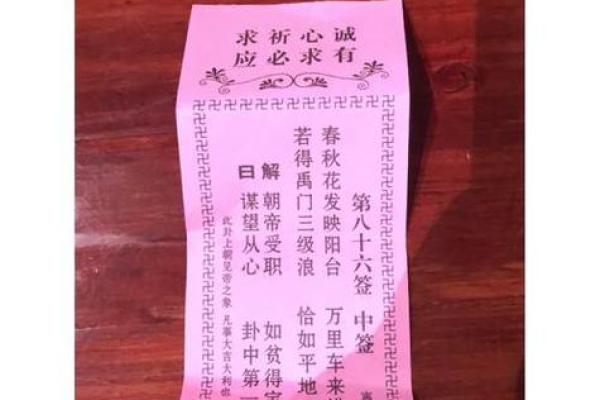 诚心祈求
有求必应
第八十六签 中签
春秋花发映阳台 万里车来
若得禹门三级浪 恰如平地
解曰
朝帝受职 如贫得
谋望从心 卦中第一
此卦上朝见帝之象 凡事大吉大利也